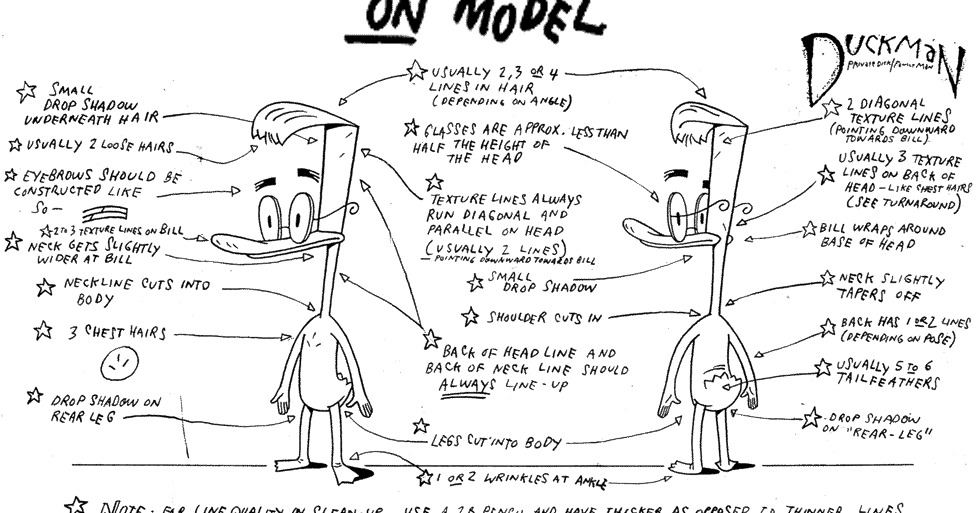 ON MODEL
DUCKMAN
PRIVATE DICK/FAMILY MAN
SMALL
DROP SHADOW
UNDERNEATH HAIR
USUALLY 2 LOOSE HAIRS
EYEBROWS SHOULD BE
CONSTRUCTED LIKE
SO —
2 TO 3 TEXTURE LINES ON BILL
NECK GETS SLIGHTLY
WIDER AT BILL
NECKLINE CUTS INTO
BODY
3 CHEST HAIRS
DROP SHADOW ON
REAR LEG
USUALLY 2, 3 OR 4
LINES IN HAIR
(DEPENDING ON ANGLE)
GLASSES ARE APPROX. LESS THAN
HALF THE HEIGHT OF
THE HEAD
TEXTURE LINES ALWAYS
RUN DIAGONAL AND
PARALLEL ON HEAD
(USUALLY 2 LINES)
— POINTING DOWNWARD TOWARDS BILL
SMALL
DROP SHADOW
SHOULDER CUTS IN
BACK OF HEAD LINE AND
BACK OF NECK LINE SHOULD
ALWAYS LINE-UP
LEGS CUT INTO BODY
1 OR 2 WRINKLES AT ANKLE
2 DIAGONAL
TEXTURE LINES
(POINTING DOWNWARD
TOWARDS BILL)
USUALLY 3 TEXTURE
LINES ON BACK OF
HEAD – LIKE CHEST HAIRS
(SEE TURNAROUND)
BILL WRAPS AROUND
BASE OF HEAD
NECK SLIGHTLY
TAPERS OFF
BACK HAS 1 OR 2 LINES
(DEPENDING ON POSE)
USUALLY 5 TO 6
TAILFEATHERS
DROP SHADOW
ON "REAR-LEG"
NOTE: FOR LINE QUALITY IN CLEAN-UP, USE A 2B PENCIL AND HAVE THICKER AS OPPOSED TO THINNER LINES